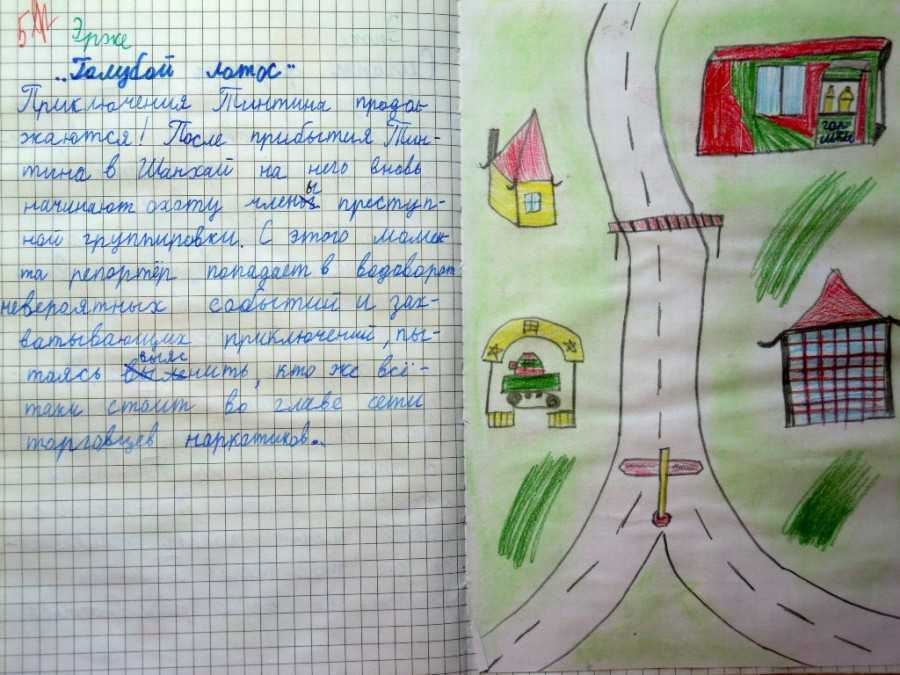 5
Эрже
„Голубой лотос"
Приключения Тинтина продол-
жаются! После прибытия Тин-
тина в Шанхай на него вновь
начинают охоту члены преступ-
ной группировки. С этого момен-
та репортёр попадает в водоворот
невероятных событий и зах-
ватывающих приключений, пы-
таясь выяснить, кто же всё-
таки стоит во главе сети
торговцев наркотиков...